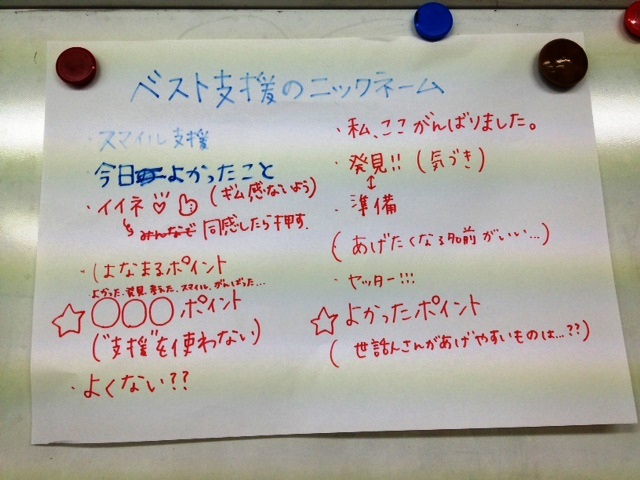 ベスト支援のニックネーム
・スマイル支援
今日よかったこと
・イイネ!! ♡ (ギム感ないよう)
↳ みんなで 同感したら押す.
・はなまるポイント
よかった、発見、考えた、スマイル、がんばった…
☆〇〇〇ポイント
("支援"を使わない)
・よくない??
・私、ここがんばりました。
・発見!! (気づき)
↕
・準備
(あげたくなる名前がいい…)
・ヤッター!!!
☆よかったポイント
(世話人さんがあげやすいものは…??)